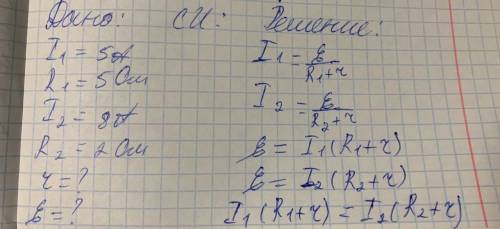 Дано: СИ: Решение:
I₁ = 5 А
R₁ = 5 Ом
I₂ = 8 А
R₂ = 2 Ом
r = ?
ℰ = ?
I₁ = ℰ/(R₁+r)
I₂ = ℰ/(R₂+r)
ℰ = I₁(R₁+r)
ℰ = I₂(R₂+r)
I₁(R₁+r) = I₂(R₂+r)